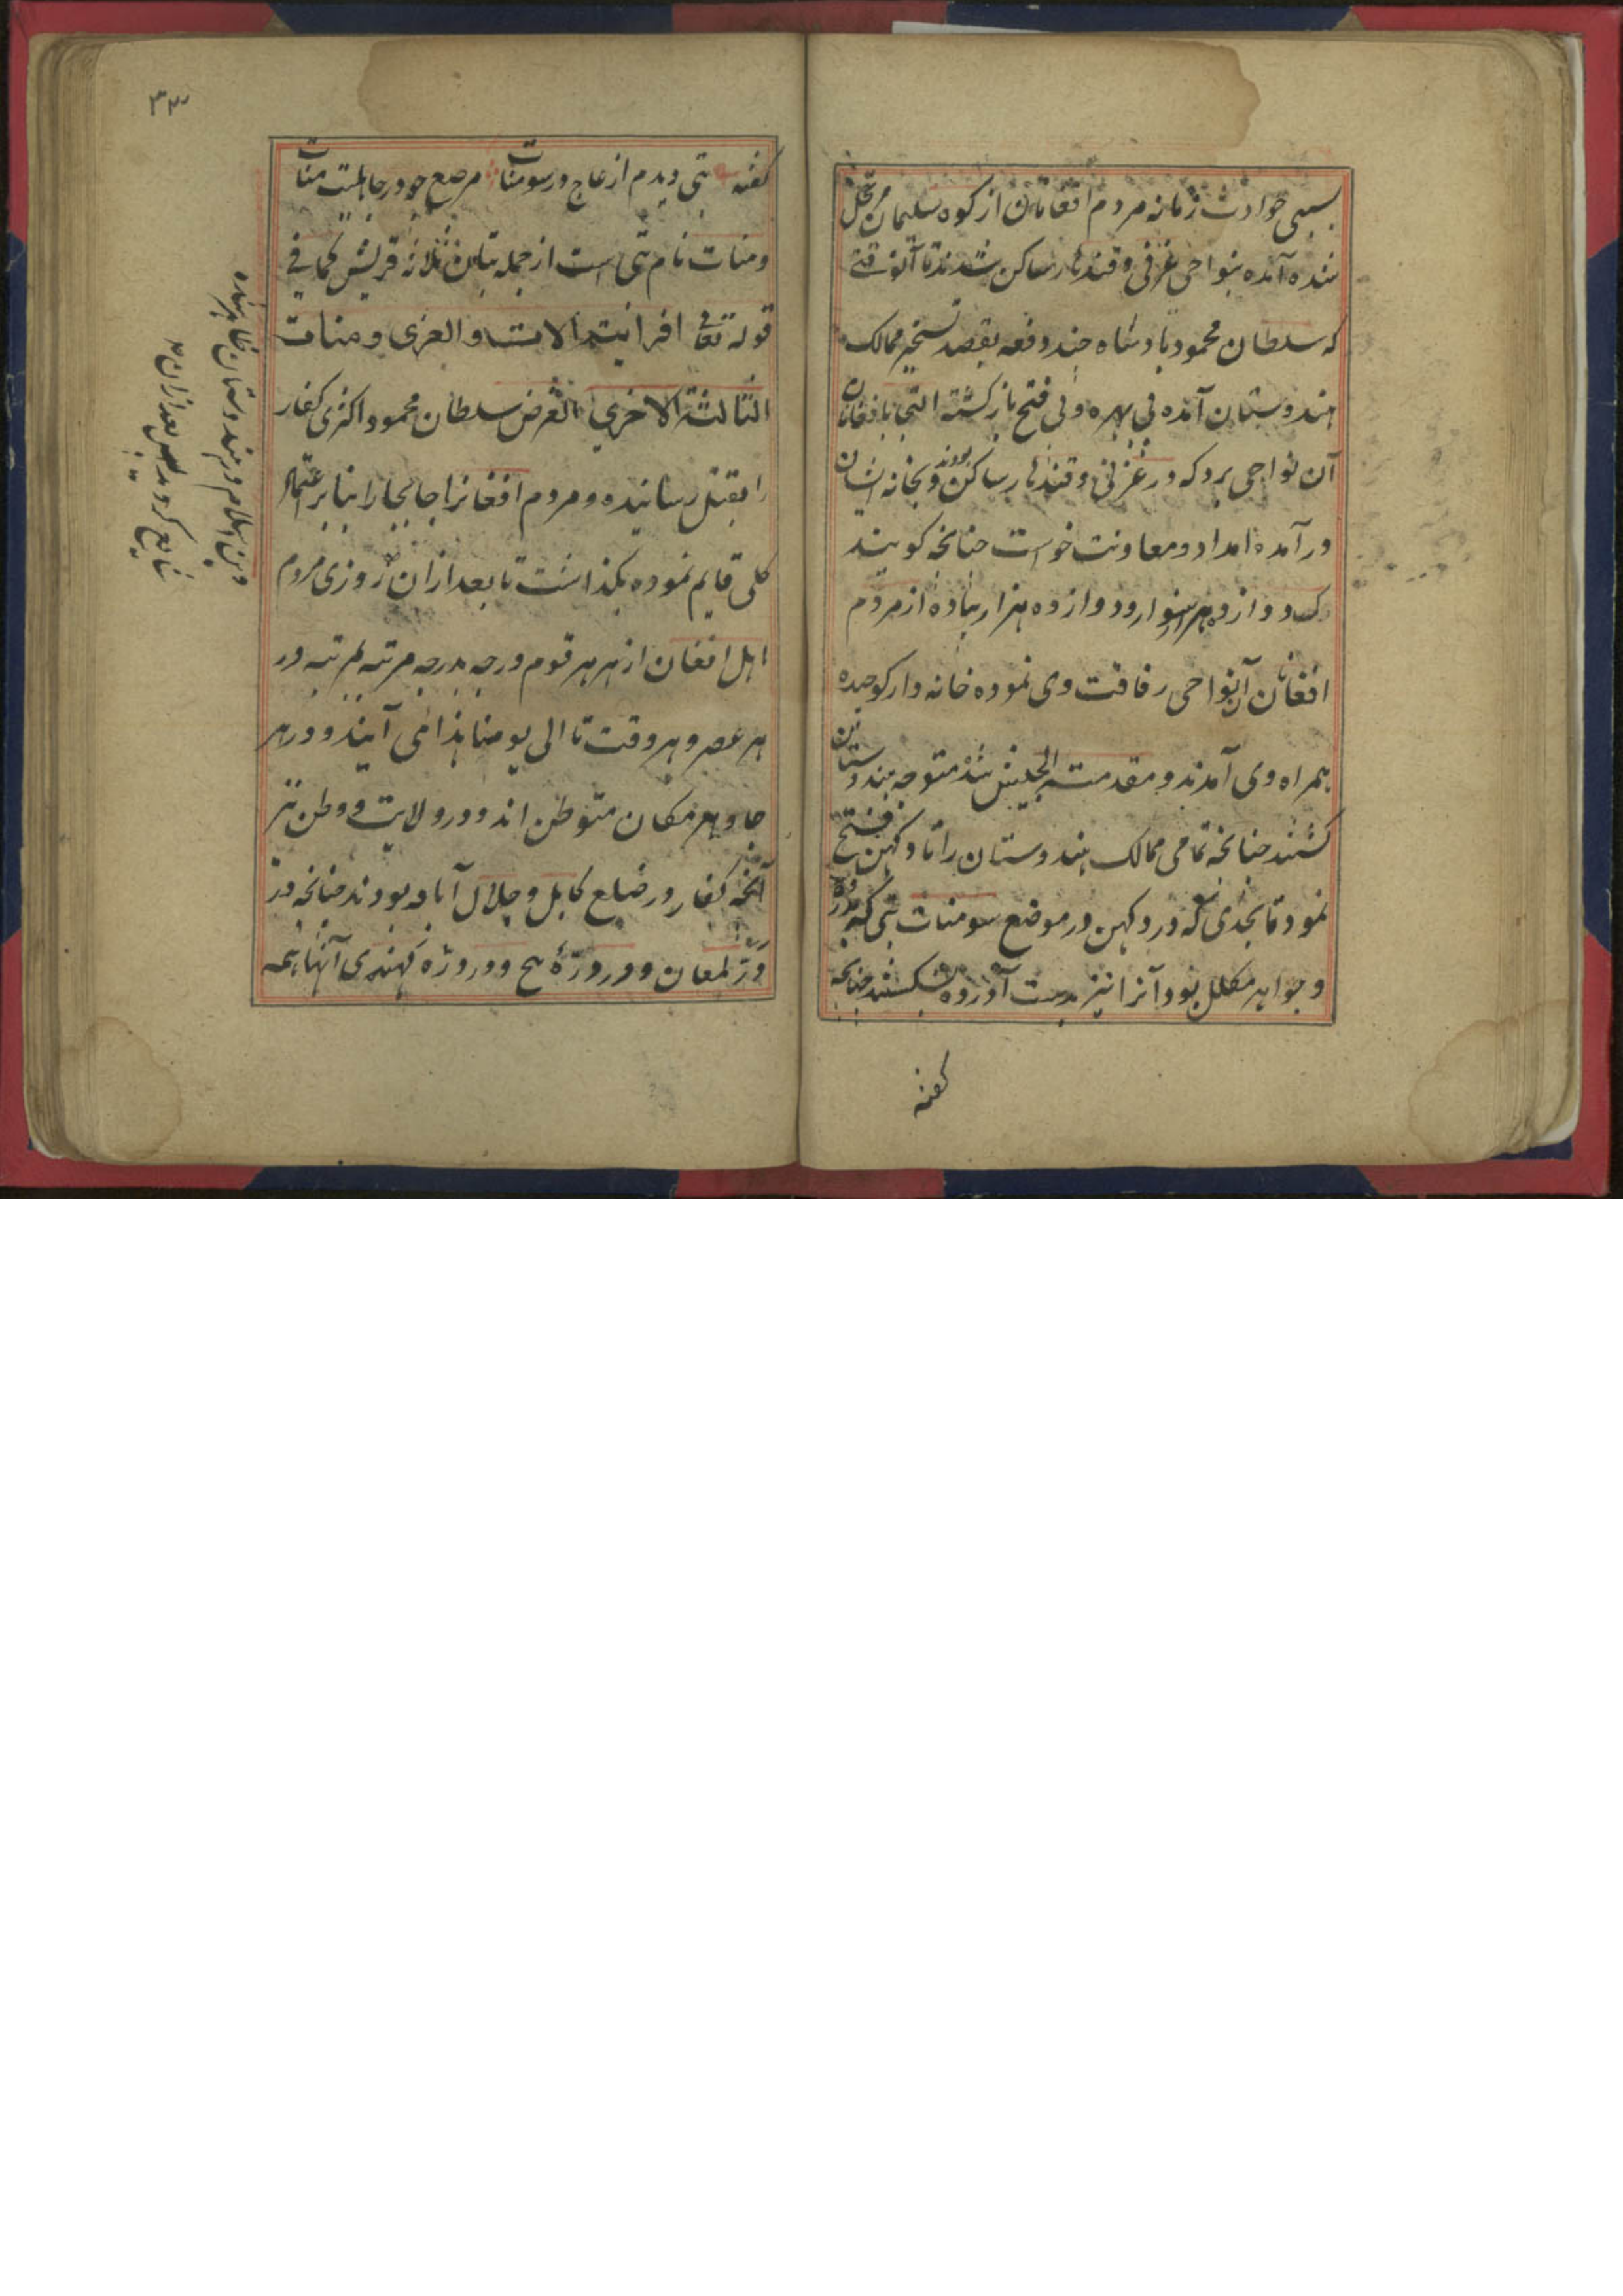 بسببی حوادث زمانه مردم افغانان از کوه سلیمان مرتحل
شده آمده بنواحی غزنی و قندهار ساکن شدند تا آنوقتی
که سلطان محمود بادشاه چند دفعه بقصد تسخیر ممالک
هندوستان آمده بی بهره و بی فتح باز کشته التجا بافغانان
آن نواحی برد که در غزنی و قندهار ساکن بودند و بخانه ایشان
در آمده امداد و معاونت خواست چنانچه کویند
که دوازده هزار سوار و دوازده هزار پیاده از مردم
افغانان آنواحی رفاقت وی نموده خانه وار کوچیده
همراه وی آمدند و مقدمته الجیش شده متوجه هندوستان
کشتند چنانچه تمامی ممالک هندوستان را تا دکهن فتح
نمود تا بحدی که در دکهن در موضع سومنات بتی که بزر
و جواهر مکلل بود آنرا نیز بدست آورده شکستند چنانچه
کفته
۳۳
کفته بتی دیدم از عاج در سومنات مرصع چو در جاهلیت منات
و منات نام بتی است از جمله بتان ثلاثه قریش کما فی
قوله تعالی افرایتم الات والعزی و منات
الثالثة الاخری الغرض سلطان محمود اکثری کفار
را بقتل رسانیده و مردم افغانرا جا بجا را بنابر اعتماد
کلی قایم نموده بکذاشت تا بعد ازان روزی مردم
اهل افغان از هر هر قوم درجه بدرجه مرتبه بمرتبه در
هر عصر و هر وقت تا الی یومنا هذا می آیند و در هر
جا و هر مکان متوطن اند و در ولایت و وطن نیز
آنچه کفار در ضلع کابل و جلال آباد بودند چنانچه در
در لمغان و در درّهٔ پیچ و در درّه کهندی آنها همه
دین اسلام در هندوستان ظاهر شده
شایع کردید بعد ازان